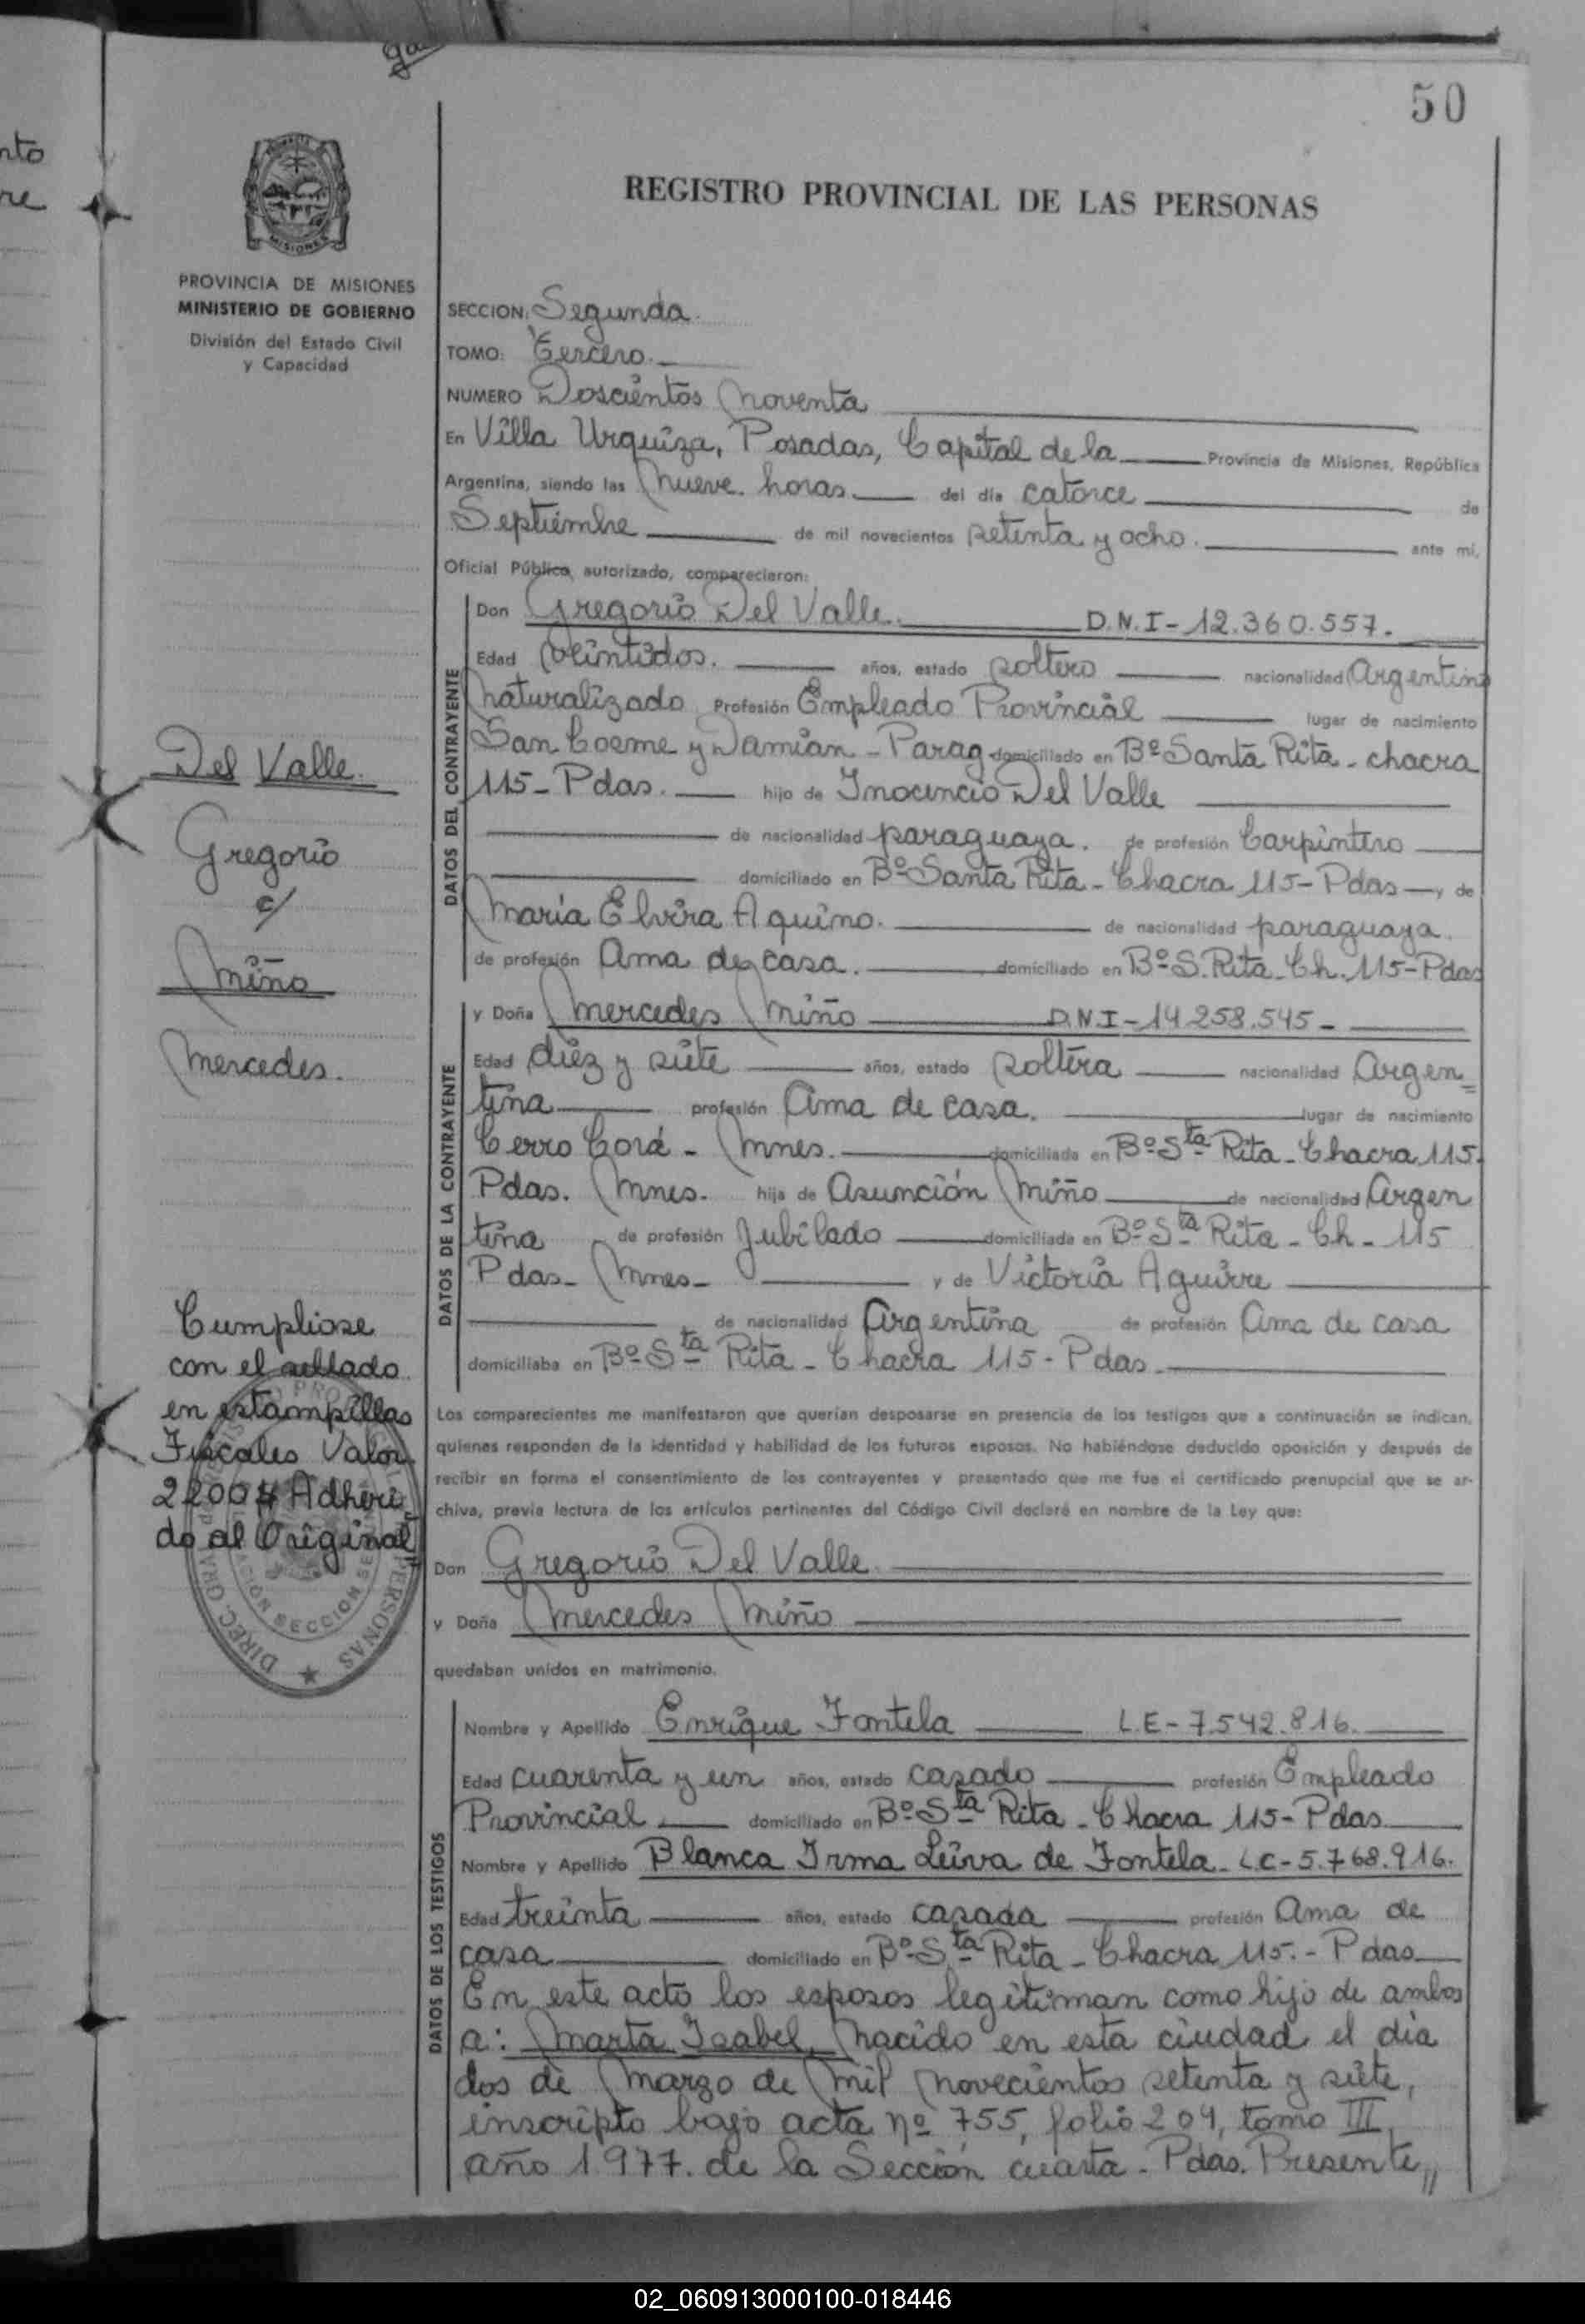 50
nto
re
MISIONES
PROVINCIA DE MISIONES
MINISTERIO DE GOBIERNO
División del Estado Civil
y Capacidad
REGISTRO PROVINCIAL DE LAS PERSONAS
SECCION: Segunda
TOMO: Tercero.
NUMERO Doscientos Noventa
En Villa Urquiza, Posadas, Capital de la Provincia de Misiones, República
Argentina, siendo las Nueve horas del día catorce de
Septiembre de mil novecientos setenta y ocho. ante mí,
Oficial Público autorizado, comparecieron:
DATOS DEL CONTRAYENTE
Don Gregorio Del Valle. D.N.I-12.360.557.
Edad Veintidos. años, estado soltero nacionalidad Argentino
Naturalizado Profesión Empleado Provincial lugar de nacimiento
San Cosme y Damian - Parag domiciliado en Bº Santa Rita - chacra
115- Pdas. hijo de Inocencio Del Valle
de nacionalidad paraguaya. de profesión Carpintero
domiciliado en Bº Santa Rita - Chacra 115- Pdas y de
María Elvira Aquino. de nacionalidad paraguaya.
de profesión Ama de casa. domiciliado en Bº S. Rita - Ch. 115- Pdas
DATOS DE LA CONTRAYENTE
y Doña Mercedes Miño D.N.I-14.258.545-
Edad diez y siete años, estado soltera nacionalidad Argen=
tina profesión Ama de casa. lugar de nacimiento
Cerro Corá - Mnes. domiciliada en Bº Sta Rita - Chacra 115.
Pdas. Mnes. hija de Asunción Miño de nacionalidad Argen
tina de profesión Jubilado domiciliado en Bº Sta Rita - Ch - 115
Pdas - Mnes - y de Victoria Aguirre
de nacionalidad Argentina de profesión Ama de casa
domiciliaba en Bº Sta Rita - Chacra 115 - Pdas.
Los comparecientes me manifestaron que querían desposarse en presencia de los testigos que a continuación se indican,
quienes responden de la identidad y habilidad de los futuros esposos. No habiéndose deducido oposición y después de
recibir en forma el consentimiento de los contrayentes y presentado que me fue el certificado prenupcial que se ar-
chiva, previa lectura de los artículos pertinentes del Código Civil declaré en nombre de la Ley que:
Don Gregorio Del Valle.
y Doña Mercedes Miño
quedaban unidos en matrimonio.
DATOS DE LOS TESTIGOS
Nombre y Apellido Enrique Fontela L.E-7.542.816.
Edad cuarenta y un años, estado casado profesión Empleado
Provincial domiciliado en Bº Sta Rita - Chacra 115- Pdas
Nombre y Apellido Blanca Irma Leiva de Fontela - L.C-5.768.916.
Edad treinta años, estado casada profesión Ama de
casa domiciliado en Bº Sta Rita - Chacra 115. - Pdas
En este acto los esposos legitiman como hijo de ambos
a: Marta Isabel, Nacido en esta ciudad el día
dos de Marzo de Mil Novecientos setenta y siete,
inscripto bajo acta nº 755, folio 204, tomo III,
año 1977. de la Sección cuarta - Pdas. Presente,,
Del Valle.
Gregorio
c/
Miño
Mercedes.
Cumpliose
con el sellado
en estampillas
Fiscales Valor
2200$ Adheri
do al Original
02_060913000100-018446